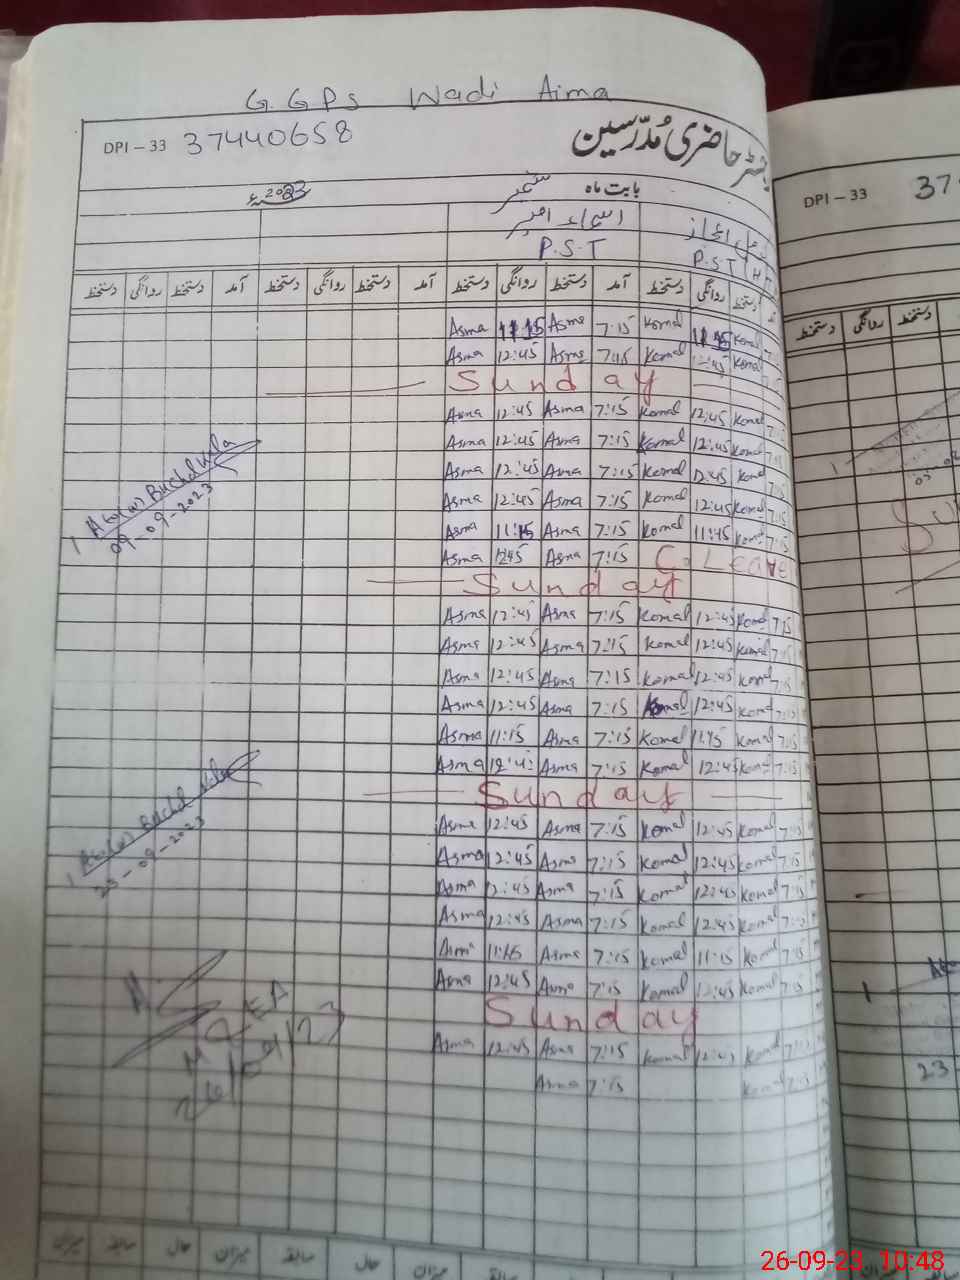 G. GPS Wadi Aima
DPI – 33 37440658 رجسٹر حاضری مُدرّسین
بابت ماہ ستمبر 2023ء
اسماء امبر
P.S.T P.S.T
دستخط روانگی دستخط آمد دستخط روانگی دستخط آمد دستخط روانگی دستخط آمد دستخط روانگی دستخط
Asma 11:15 Asma 7:15 Komal 11:15 Komal 7:15
Asma 12:45 Asma 7:15 Komal 12:45 Komal 7:15
Sunday
Asma 12:45 Asma 7:15 Komal 12:45 Komal 7:15
Asma 12:45 Asma 7:15 Komal 12:45 Komal 7:15
Asma 12:45 Asma 7:15 Komal 12:45 Komal 7:15
Asma 12:45 Asma 7:15 Komal 12:45 Komal 7:15
Asma 11:15 Asma 7:15 Komal 11:45 Komal 7:15
Asma 12:45 Asma 7:15 C. Leave
Sunday
Asma 12:45 Asma 7:15 Komal 12:45 Komal 7:15
Asma 12:45 Asma 7:15 Komal 12:45 Komal 7:15
Asma 12:45 Asma 7:15 Komal 12:45 Komal 7:15
Asma 12:45 Asma 7:15 Komal 12:45 Komal 7:15
Asma 11:15 Asma 7:15 Komal 11:45 Komal 7:15
Asma 12:45 Asma 7:15 Komal 12:45 Komal 7:15
Sunday
Asma 12:45 Asma 7:15 Komal 12:45 Komal 7:15
Asma 12:45 Asma 7:15 Komal 12:45 Komal 7:15
Asma 12:45 Asma 7:15 Komal 12:45 Komal 7:15
Asma 12:45 Asma 7:15 Komal 12:45 Komal 7:15
Asma 11:15 Asma 7:15 Komal 11:15 Komal 7:15
Asma 12:45 Asma 7:15 Komal 12:45 Komal 7:15
Sunday
Asma 12:45 Asma 7:15 Komal 12:45 Komal 7:15
Asma 7:15 Komal 7:15
09-09-2023
23-09-2023
26/09/23
میزان سابقہ حال میزان سابقہ حال میزان سابقہ
DPI – 33 37
دستخط روانگی دستخط
23
26-09-23 10:48